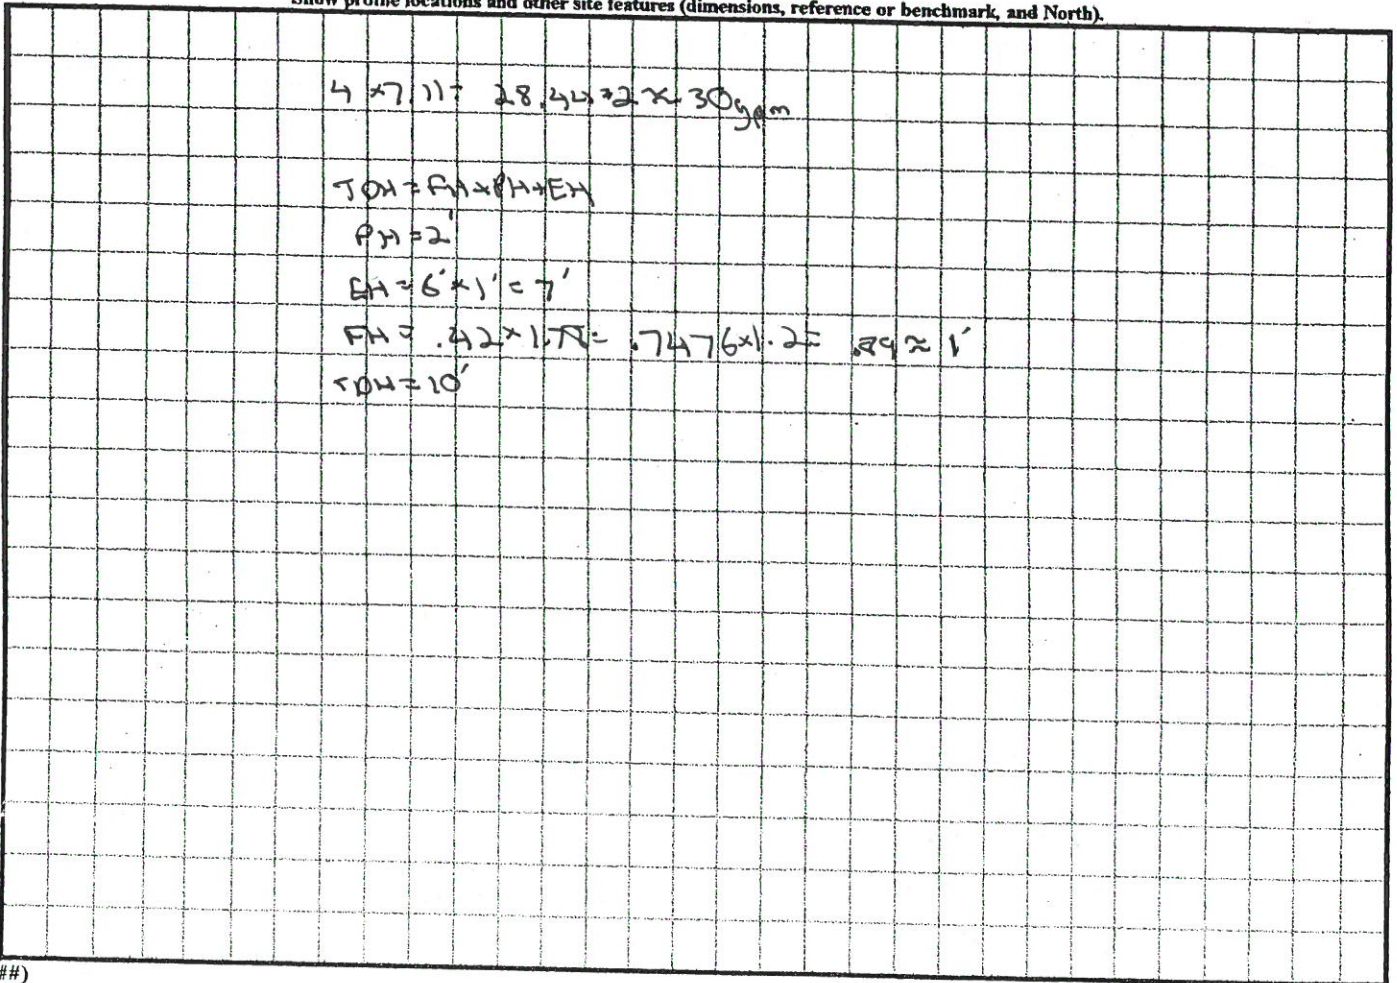 Show profile locations and other site features (dimensions, reference or benchmark, and North).
4 × 7.11 = 28.44 + 2 ≈ 30 gpm
TDH = FH + PH + EH
PH = 2'
EH = 6' + 1' = 7'
FH = .42 × 1.78 = .7476 × 1.2 = .89 ≈ 1'
TDH = 10'
##)